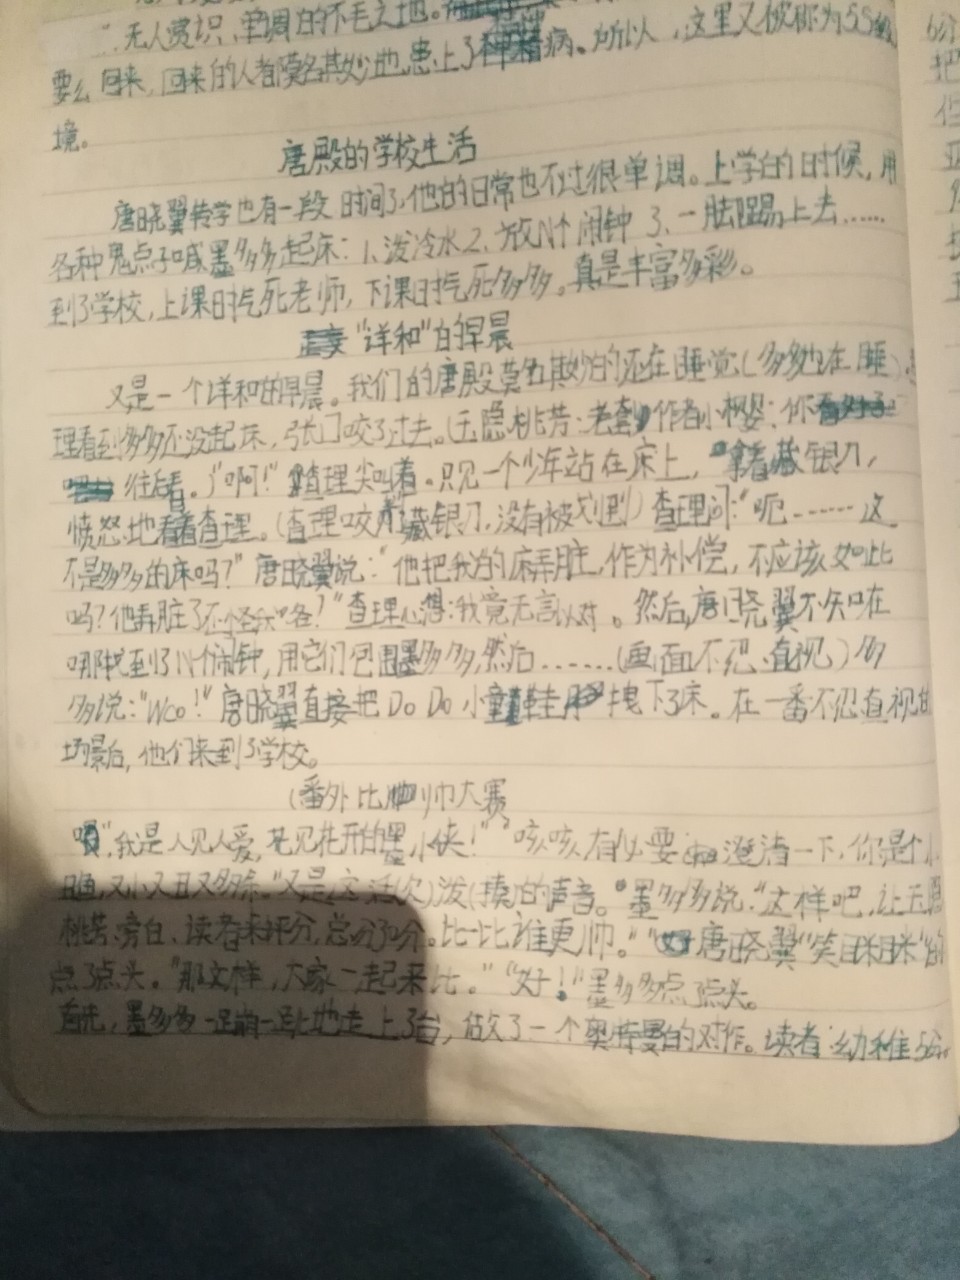 无人赏识、单调的不毛之地。
要么回来,回来的人都莫名其妙地患上了神精病。所以,这里又被称为SS级
境。
唐殿的学校生活
唐晓翼转学也有一段时间了,他的日常也不过很单调。上学的时候,用
各种鬼点子喊墨多多起床:1、泼冷水2、放N个闹钟 3、一脚踢上去……
到了学校,上课时气死老师,下课时气死多多。真是丰富多彩。
"详和"的早晨
又是一个详和的早晨。我们的唐殿莫名其妙的还在睡觉(多多也在睡)
理看到多多还没起床,张口咬了过去。(玉隐桃芳:作者小樱:你
往后看。)"啊!"查理尖叫着。只见一个少年站在床上,拿着藏银刀,
愤怒地看着查理。(查理咬藏银刀,没有被划到)查理问:"呃……这
不是多多的床吗?"唐晓翼说:"他把我的床弄脏,作为补偿,不应该如此
吗?他弄脏了不怪我咯?"查理心想:我竟无言以对。然后,唐晓翼不知在
哪找到了N个闹钟,用它们包围墨多多,然后……(画面不忍直视)多
多说:"Wco!"唐晓翼直接把DoDo小童鞋拽下了床。在一番不忍直视的
场景后,他们来到了学校。
(番外比帅大赛
"我是人见人爱,花见花开的墨小侠!""咳咳,有必要澄清一下,你是个小
又小又丑又多余。"又是这活(欠)泼(揍)的声音。墨多多说:"这样吧,让玉隐
桃芳旁白、读者来评分,总分10分。比一比谁更帅。"唐晓翼"笑眯眯"的
点了点头。"那文样,大家一起来比。""好!"墨多多点了点头。
首先,墨多多一蹦一跳地走上了台,做了一个奥特曼的动作。读者:幼稚5分。